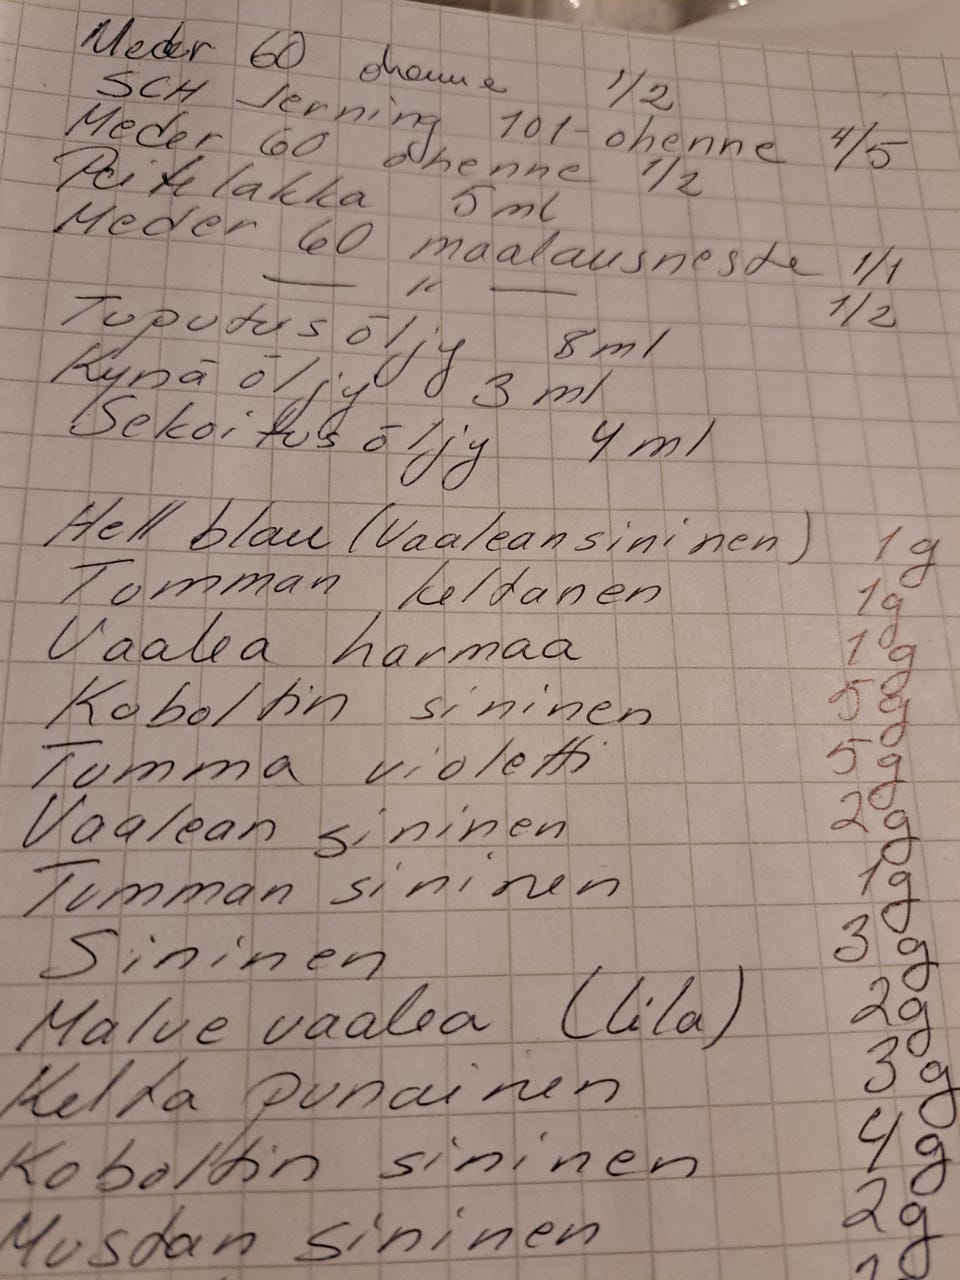 Meder 60 ohenne 1/2
SCH Jerning 101-ohenne 4/5
Meder 60 ohenne 1/2
Peitelakka 5 ml
Meder 60 maalausneste 1/1
— " — 1/2
Toputus öljy 8 ml
Kynä öljy 3 ml
Sekoitus öljy 4 ml
Hell blau (Vaaleansininen) 1 g
Tumman keltanen 1 g
Vaalea harmaa 1 g
Koboltin sininen 5 g
Tumma violetti 5 g
Vaalean sininen 2 g
Tumman sininen 1 g
Sininen 3 g
Malve vaalea (lila) 2 g
Kelta punainen 3 g
Koboltin sininen 4 g
Mustan sininen 2 g